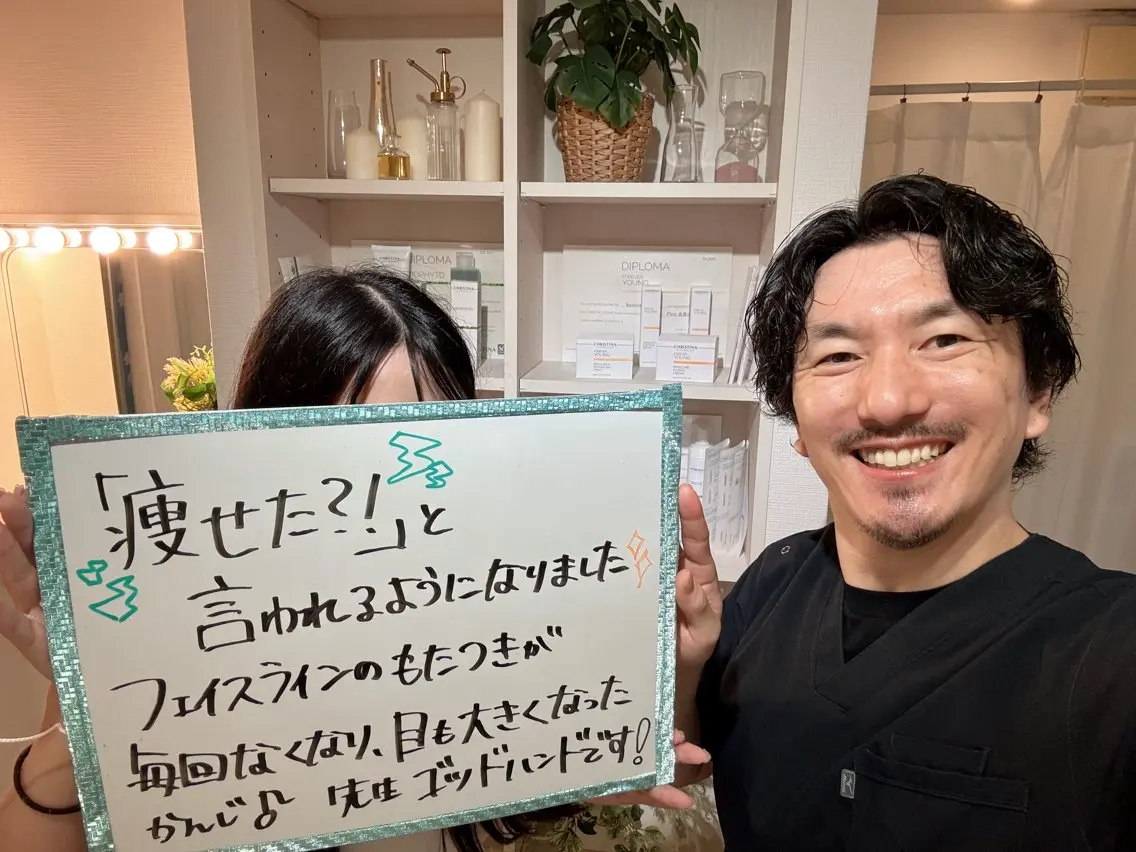 「痩せた?!」と
言われるようになりました
フェイスラインのもたつきが
毎回なくなり、目も大きくなった
かんじ♪ 先生ゴッドハンドです!
DIPLOMA
DIPLOMA
FOREVER
YOUNG
CHRISTINA
CHRISTINA
FOREVER
YOUNG
CHRISTINA
FOREVER
YOUNG